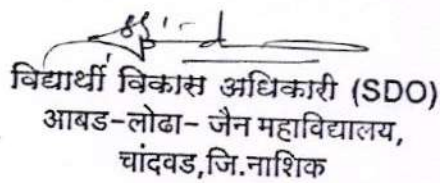 विद्यार्थी विकास अधिकारी (SDO)
आबड-लोढा- जैन महाविद्यालय,
चांदवड,जि.नाशिक